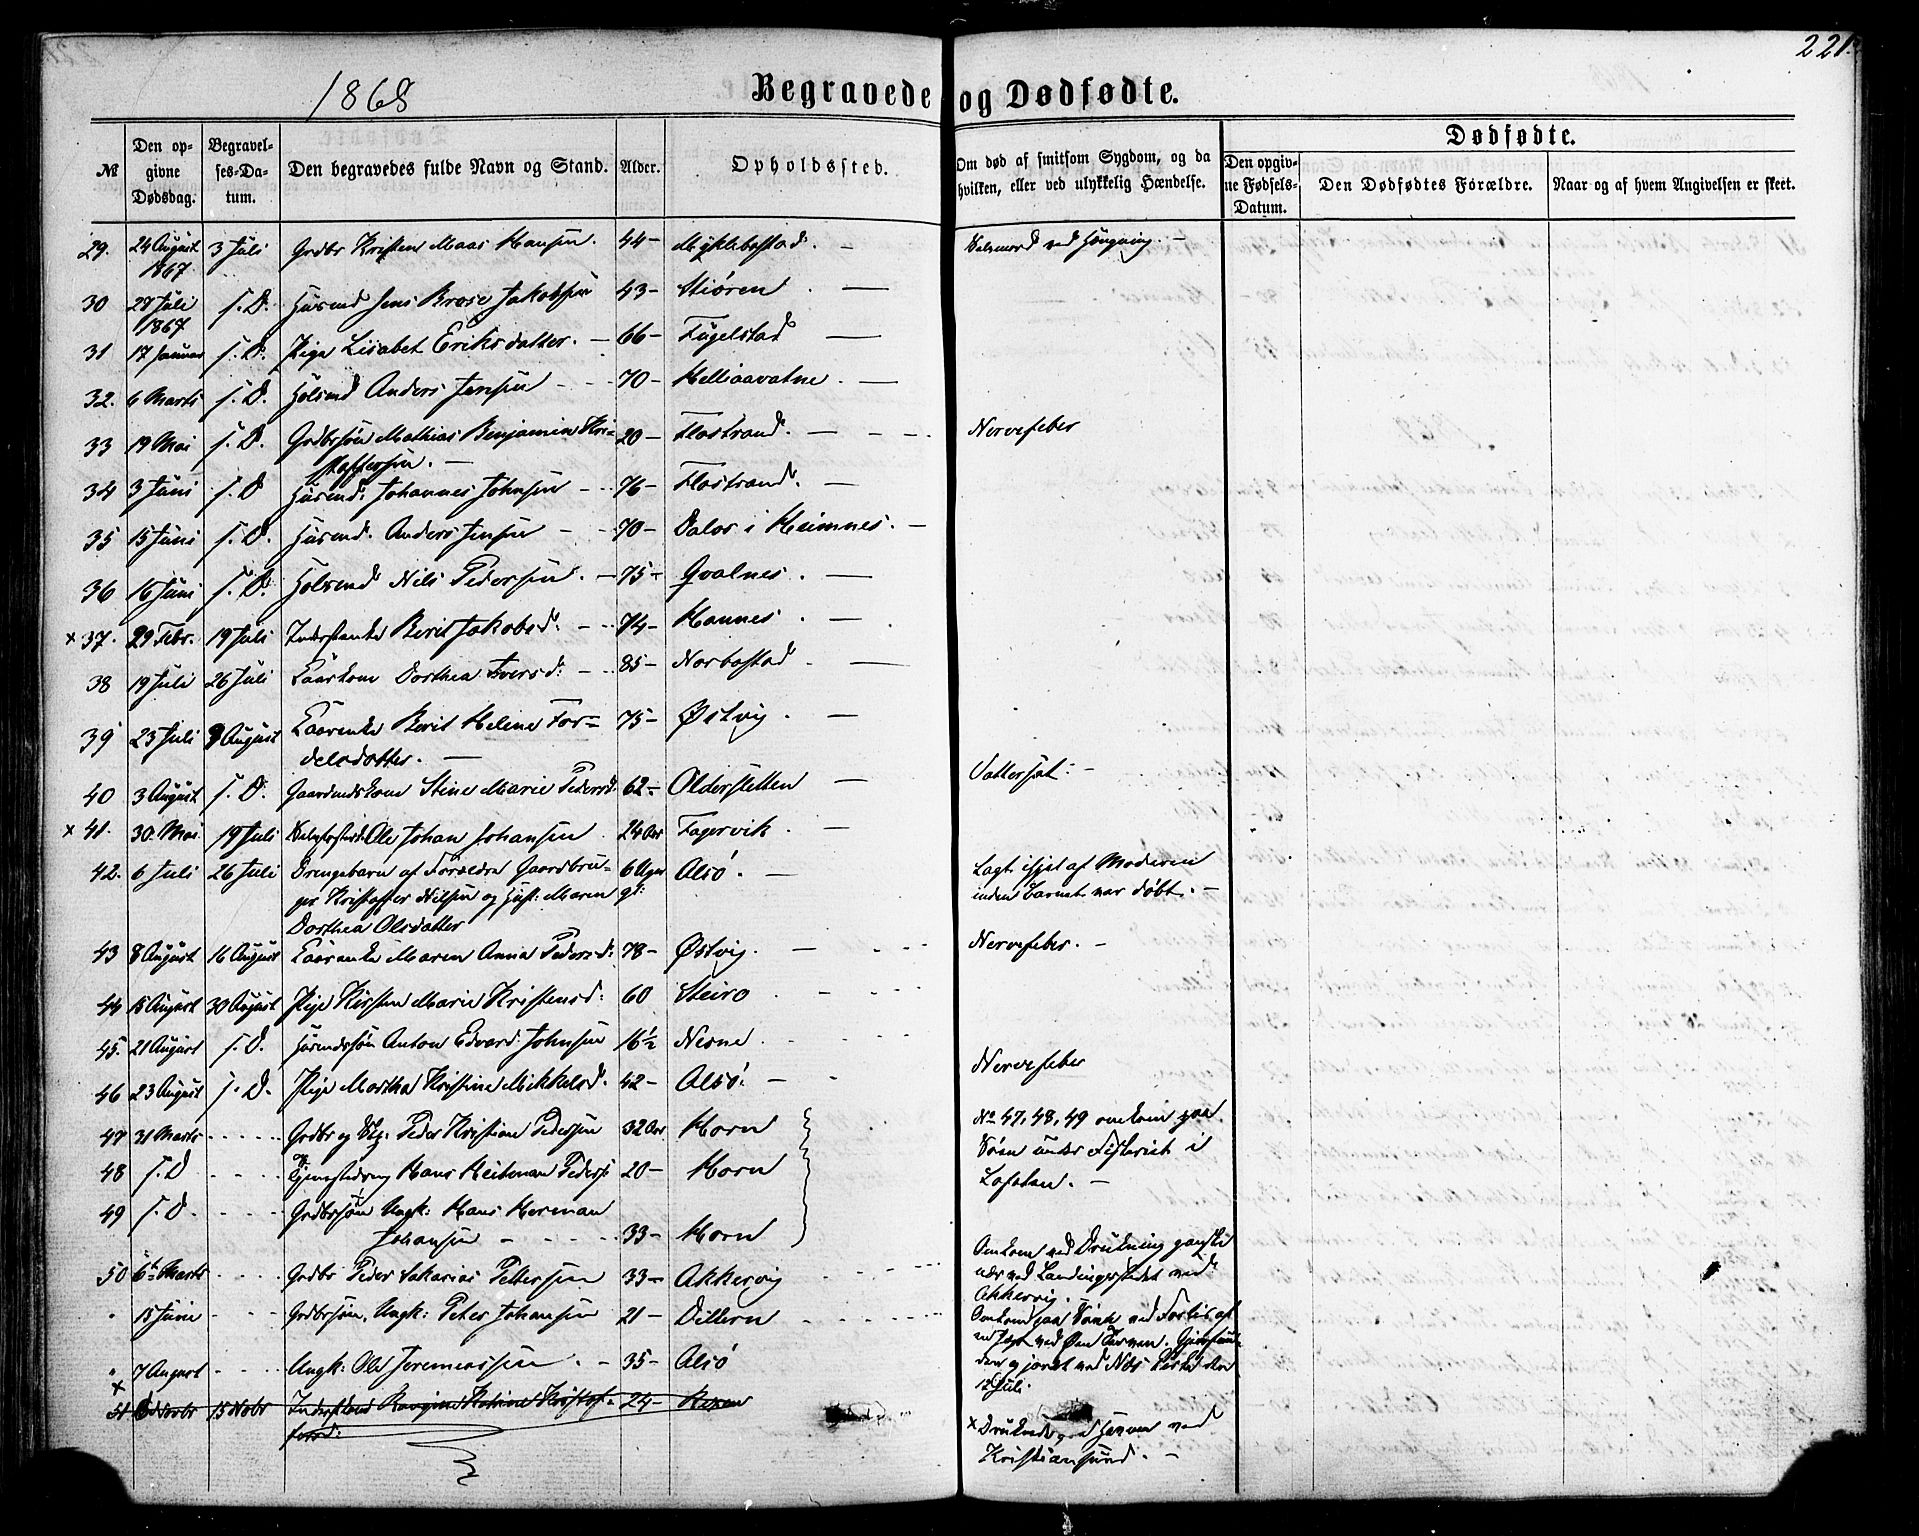 221.
1868
Begravede og Dødfødte.
Dødfødte.
№
Den opgivne Dødsdag.
Begravelses-Datum.
Den begravedes fulde Navn og Stand.
Alder.
Opholdssted.
Om død af smitsom Sygdom, og da hvilken, eller ved ulykkelig Hændelse.
Den opgivne Fødsels-Datum.
Den Dødfødtes Forældre.
Naar og af hvem Angivelsen er skeet.
29. 24 August 1867 3 Juli Grdbr Kristen Maas Hansen. 44 - Myklebostad. - Selvmord ved Hængning. -
30 28 Juli 1867 s. D. Huusmd Jens Brose Jakobsen 43 - Stiøren -
31 17 Januar s. D. Pige Lisabet Eriksdatter. - 66 - Fugelstad -
32. 6 Marts s. D. Anders Jensen - 70 - Helliaavatne. -
33 19 Mai s. D. Grdbrsøn Mathias Benjamin Kri-
stoffersen. - 20 - Flostrand. - Nervefeber
34 3 Juni s. D Huusmd: Johannes Johnsen - 76 - Flostrand. -
35 15 Juni s. D. Huusmd. Anders Jensen - 70 - Dalos i Heimnes. -
36 16 Juni s. D. Nils Pedersen. - 75 - Qvalnes. -
× 37. 29 Febr. 19 Juli Inderstenke Berit Jakobsd. - 74 - Hannes. -
38 19 Juli 26 Juli Kaarkone Dorthea Iversd: - 85 - Norbostad. -
39 23 Juli 9 August Kaarenke Berit Heline For=
delsdatter. - 75 - Østvig. -
40 3 August s. D. Gaardmdskone Stine Marie Pedersd. 62 - Olderstetten - Vattersot: -
× 41. 30. Mai 19 Juli Ole Johan Johansen. 24 Aar Fagervik. -
42. 6 Juli 26 Juli Drengebarn af Forældre Gaardbru-
ger Kristoffer Nilsen og Hust: Maren
Dorthea Olsdatter 6 Uger gl: Alsó. - Lagt ihjel af Moderen
inden Barnet var døbt. -
43 8 August 16 August Kaarenke Maren Anna Pedersd: 78 - Østvig. - Nervefeber. -
44 15 August 30 August Pige Kirsten Marie Kristensd: 60 Steiro
45. 21 August s. D. Huusmdssøn Anton Edvard Johnsen 16½ Nesne
46 23 August s. D. Pige Martha Kristine Mikkelsd. 42 - Alsó. - Nervefeber
47 31 Marts Grdbr og Peder Kristian Pedersen 32 Aar Horn
48 s. D Hans Heitman Peders: 20 - Horn
49 s. D. Grdbrsøn Ungk: Hans Herman
Johansen 33 - Horn
No 47, 48, 49 omkom paa
Søen under Fiskeriet i
Lofoten. -
50 6te Marts Grdbr Peder Sakarias Pettersen 33 - Akkervig Omkom ved Drukning ganske
nær ved Landingsstedet ved
Akkervig. -
" 15 Junie Grdbrsøn, Ungk: Peter Johansen 21 - Dillern Omkom paa ved Forlis af
en Jægt ved Øen
den 9 ved Nes Kirke den
12 Juli.
" 7 August Ungk: Ole Jeremiassen. - 35 - Alsó
× 51 6 Novbr 15 Nobr Inderstkone Katrine Kristof=
fersd: 24 -
× Druknede paa Havnen ved
Kristiansund. -